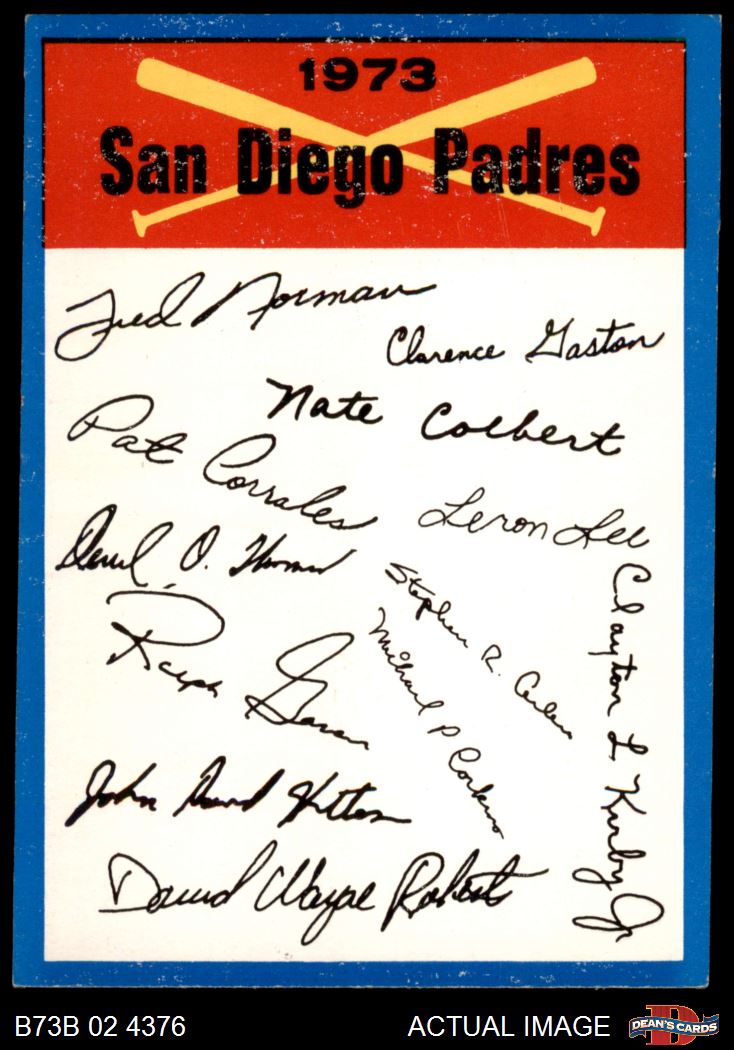 1973
San Diego Padres
Fred Norman
Clarence Gaston
Nate Colbert
Pat Corrales
Leron Lee
Derrel O. Thomas
Stephen R. Arlin
Michael P Corkins
Clayton L. Kirby Jr
Ralph Garcia
John David Hilton
David Wayne Roberts
B73B 02 4376
ACTUAL IMAGE
DEAN'S CARDS